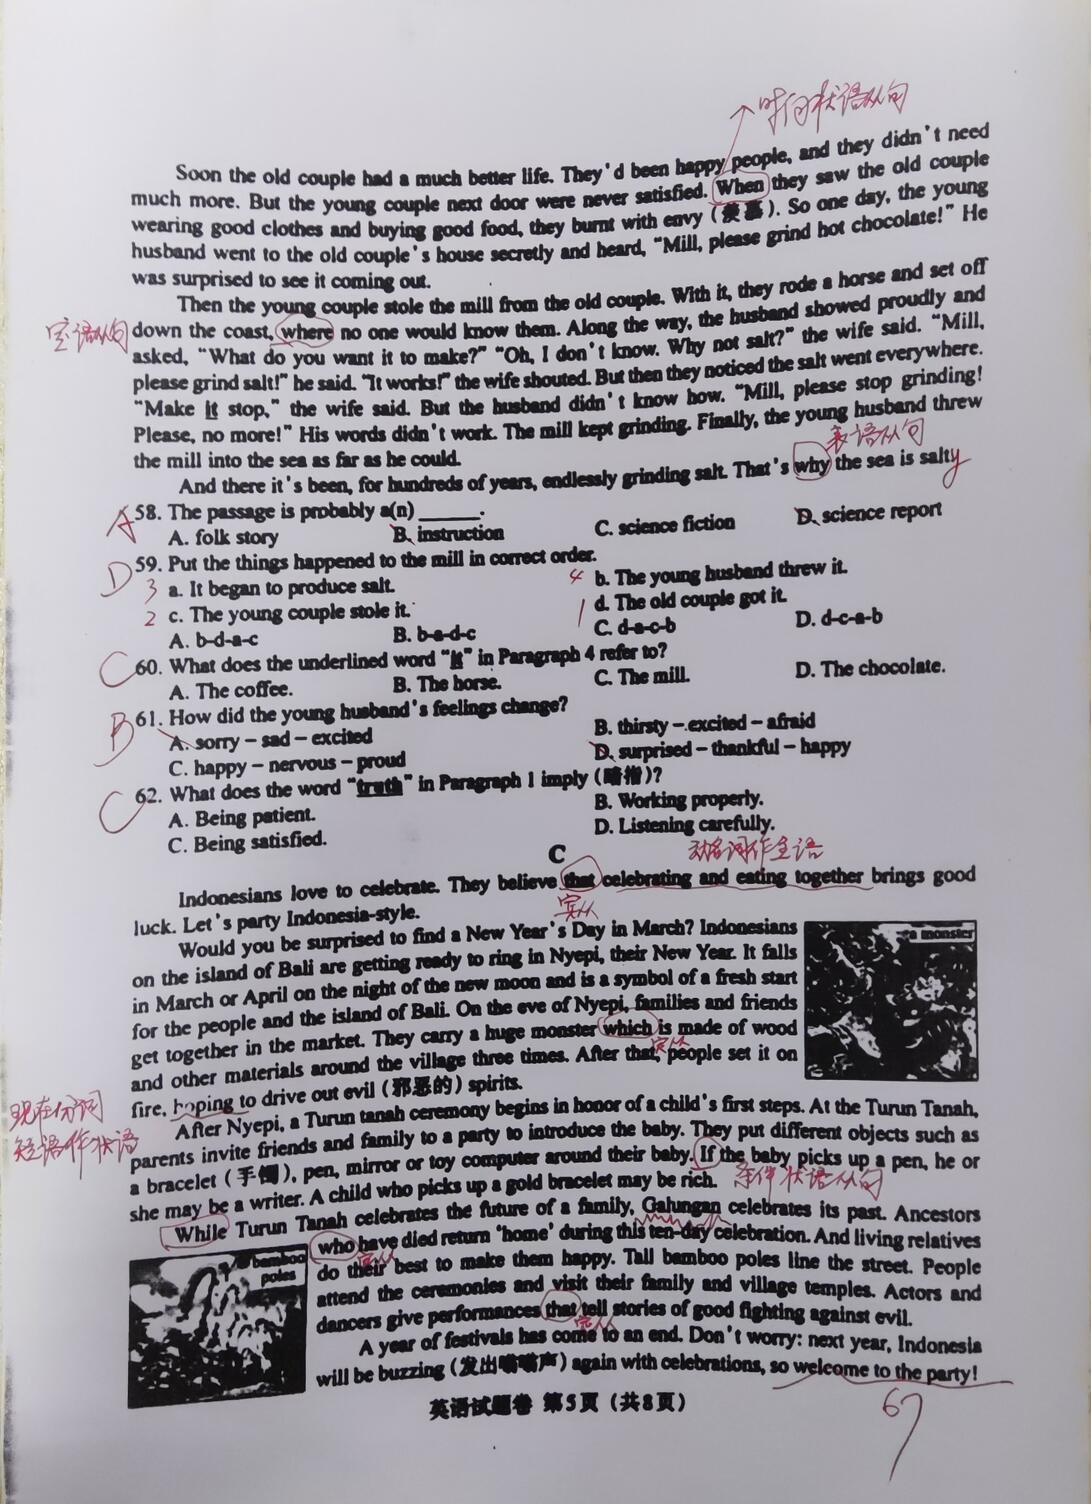 时间状语从句
Soon the old couple had a much better life. They'd been happy people, and they didn't need
much more. But the young couple next door were never satisfied. When they saw the old couple
wearing good clothes and buying good food, they burnt with envy (羡慕). So one day, the young
husband went to the old couple's house secretly and heard, "Mill, please grind hot chocolate!" He
was surprised to see it coming out.
Then the young couple stole the mill from the old couple. With it, they rode a horse and set off
定语从句 down the coast, where no one would know them. Along the way, the husband showed proudly and
asked, "What do you want it to make?" "Oh, I don't know. Why not salt?" the wife said. "Mill,
please grind salt!" he said. "It works!" the wife shouted. But then they noticed the salt went everywhere.
"Make it stop," the wife said. But the husband didn't know how. "Mill, please stop grinding!
Please, no more!" His words didn't work. The mill kept grinding. Finally, the young husband threw
the mill into the sea as far as he could.
表语从句
And there it's been, for hundreds of years, endlessly grinding salt. That's why the sea is salty
A 58. The passage is probably a(n) ______.
A. folk story B. instruction C. science fiction D. science report
D 59. Put the things happened to the mill in correct order.
3 a. It began to produce salt. 4 b. The young husband threw it.
2 c. The young couple stole it. 1 d. The old couple got it.
A. b-d-a-c B. b-a-d-c C. d-a-c-b D. d-c-a-b
C 60. What does the underlined word "it" in Paragraph 4 refer to?
A. The coffee. B. The horse. C. The mill. D. The chocolate.
B 61. How did the young husband's feelings change?
A. sorry – sad – excited B. thirsty – excited – afraid
C. happy – nervous – proud D. surprised – thankful – happy
C 62. What does the word "truth" in Paragraph 1 imply (暗指)?
A. Being patient. B. Working properly.
C. Being satisfied. D. Listening carefully.
C
动名词作主语
Indonesians love to celebrate. They believe that celebrating and eating together brings good
luck. Let's party Indonesia-style.
宾从
Would you be surprised to find a New Year's Day in March? Indonesians
on the island of Bali are getting ready to ring in Nyepi, their New Year. It falls
in March or April on the night of the new moon and is a symbol of a fresh start
for the people and the island of Bali. On the eve of Nyepi, families and friends
get together in the market. They carry a huge monster which is made of wood
定从
and other materials around the village three times. After that, people set it on
fire, hoping to drive out evil (邪恶的) spirits.
a monster
现在分词
短语作状语
After Nyepi, a Turun tanah ceremony begins in honor of a child's first steps. At the Turun Tanah,
parents invite friends and family to a party to introduce the baby. They put different objects such as
a bracelet (手镯), pen, mirror or toy computer around their baby. If the baby picks up a pen, he or
she may be a writer. A child who picks up a gold bracelet may be rich. 条件状语从句
While Turun Tanah celebrates the future of a family, Galungan celebrates its past. Ancestors
who have died return 'home' during this ten-day celebration. And living relatives
定从
do their best to make them happy. Tall bamboo poles line the street. People
attend the ceremonies and visit their family and village temples. Actors and
dancers give performances that tell stories of good fighting against evil.
定从
bamboo
poles
A year of festivals has come to an end. Don't worry: next year, Indonesia
will be buzzing (发出嗡嗡声) again with celebrations, so welcome to the party!
英语试题卷 第5页 (共8页)
67